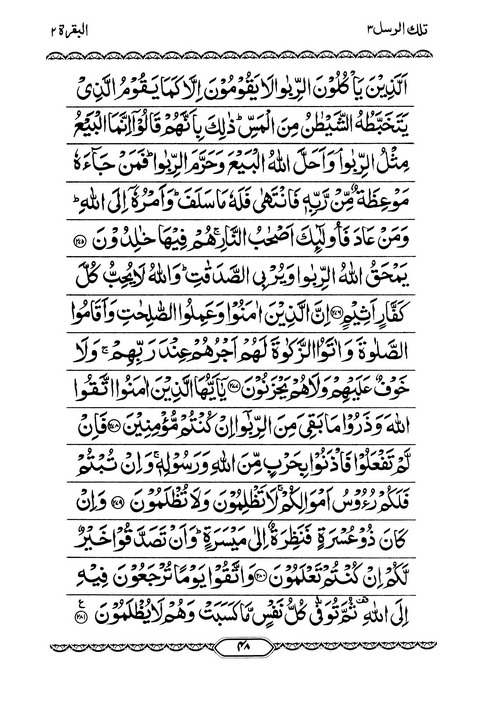 تلك الرسل ٣
البقرة ٢
اَلَّذِيْنَ يَاْكُلُوْنَ الرِّبٰوا لَا يَقُوْمُوْنَ اِلَّا كَمَا يَقُوْمُ الَّذِىْ
يَتَخَبَّطُهُ الشَّيْطٰنُ مِنَ الْمَسِّ ؕ ذٰلِكَ بِاَنَّهُمْ قَالُوْۤا اِنَّمَا الْبَيْعُ
مِثْلُ الرِّبٰوا ۘ وَاَحَلَّ اللّٰهُ الْبَيْعَ وَحَرَّمَ الرِّبٰوا ؕ فَمَنْ جَآءَهٗ
مَوْعِظَةٌ مِّنْ رَّبِّهٖ فَانْتَهٰى فَلَهٗ مَا سَلَفَ ؕ وَاَمْرُهٗۤ اِلَى اللّٰهِ ؕ
وَمَنْ عَادَ فَاُولٰٓئِكَ اَصْحٰبُ النَّارِ ۚ هُمْ فِيْهَا خٰلِدُوْنَ ﴿۲۷۵﴾
يَمْحَقُ اللّٰهُ الرِّبٰوا وَيُرْبِى الصَّدَقٰتِ ؕ وَاللّٰهُ لَا يُحِبُّ كُلَّ
كَفَّارٍ اَثِيْمٍ ﴿۲۷۶﴾ اِنَّ الَّذِيْنَ اٰمَنُوْا وَعَمِلُوا الصّٰلِحٰتِ وَاَقَامُوا
الصَّلٰوةَ وَاٰتَوُا الزَّكٰوةَ لَهُمْ اَجْرُهُمْ عِنْدَ رَبِّهِمْ ۚ وَلَا
خَوْفٌ عَلَيْهِمْ وَلَا هُمْ يَحْزَنُوْنَ ﴿۲۷۷﴾ يٰۤاَيُّهَا الَّذِيْنَ اٰمَنُوا اتَّقُوا
اللّٰهَ وَذَرُوْا مَا بَقِىَ مِنَ الرِّبٰۤوا اِنْ كُنْتُمْ مُّؤْمِنِيْنَ ﴿۲۷۸﴾ فَاِنْ
لَّمْ تَفْعَلُوْا فَاْذَنُوْا بِحَرْبٍ مِّنَ اللّٰهِ وَرَسُوْلِهٖ ۚ وَاِنْ تُبْتُمْ
فَلَكُمْ رُءُوْسُ اَمْوَالِكُمْ ۚ لَا تَظْلِمُوْنَ وَلَا تُظْلَمُوْنَ ﴿۲۷۹﴾ وَاِنْ
كَانَ ذُوْ عُسْرَةٍ فَنَظِرَةٌ اِلٰى مَيْسَرَةٍ ؕ وَاَنْ تَصَدَّقُوْا خَيْرٌ
لَّكُمْ اِنْ كُنْتُمْ تَعْلَمُوْنَ ﴿۲۸۰﴾ وَاتَّقُوْا يَوْمًا تُرْجَعُوْنَ فِيْهِ
اِلَى اللّٰهِ ۗ ثُمَّ تُوَفّٰى كُلُّ نَفْسٍ مَّا كَسَبَتْ وَهُمْ لَا يُظْلَمُوْنَ ﴿۲۸۱﴾ ع
۴۸